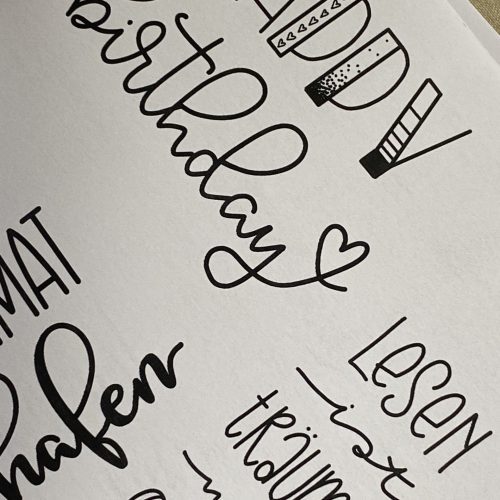 APPY
birthday
MAT
hafen
LeSEN
ist
TRÄUM